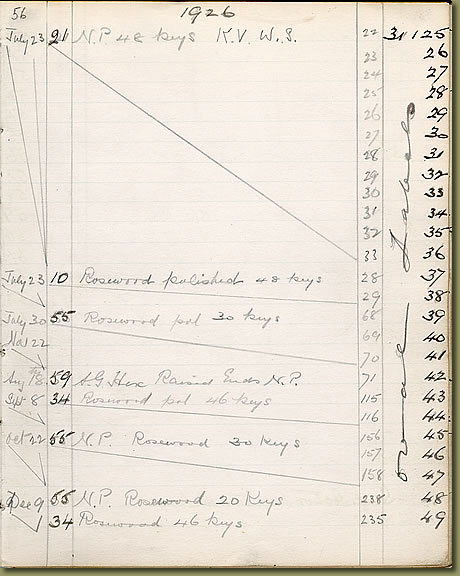 56 1926
July 23 21 N.P. 48 Keys K.V. W.S. 22 31125
23 26
24 27
25 28
26 29
27 30
28 31
29 32
30 33
31 34
32 35
33 36
July 23 10 Rosewood polished 48 Keys 28 37
29 38
July 30 55 Rosewood pol 30 Keys 68 39
Nov 22 69 40
70 41
Aug 59 S.G. Hex Raised Ends N.P. 71 42
Sept 8 34 Rosewood pol 46 Keys 115 43
116 44
Oct 22 55 N.P. Rosewood 30 Keys 156 45
157 46
158 47
Dec 9 55 N.P. Rosewood 20 Keys 238 48
34 Rosewood 46 Keys 235 49
oval Labels